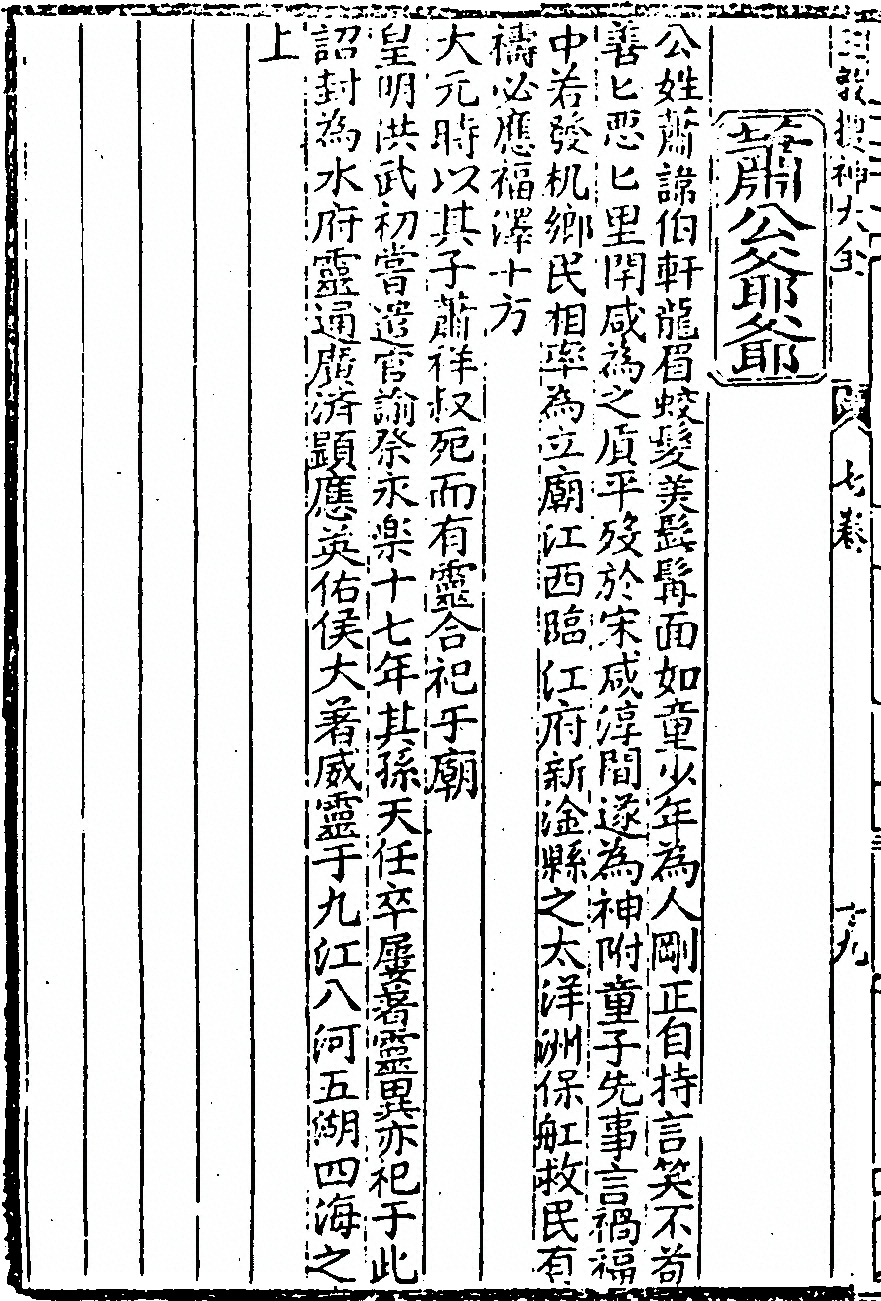 三教搜神大全
七卷
十九
蕭公爺爺
公姓蕭諱伯軒龍眉蛟髮美髭髯面如童少年為人剛正自持言笑不苟
善匕惡匕里閈咸為之質平歿於宋咸淳間遂為神附童子先事言禍福
中若發机鄉民相率為立廟江西臨江府新淦縣之太洋洲保舡救民有
禱必應福澤十方
大元時以其子蕭祥叔死而有靈合祀于廟
皇明洪武初嘗遣官諭祭永楽十七年其孫天任卒屢著靈異亦祀于此
詔封為水府靈通廣済顕應英佑侯大著威靈于九江八河五湖四海之
上